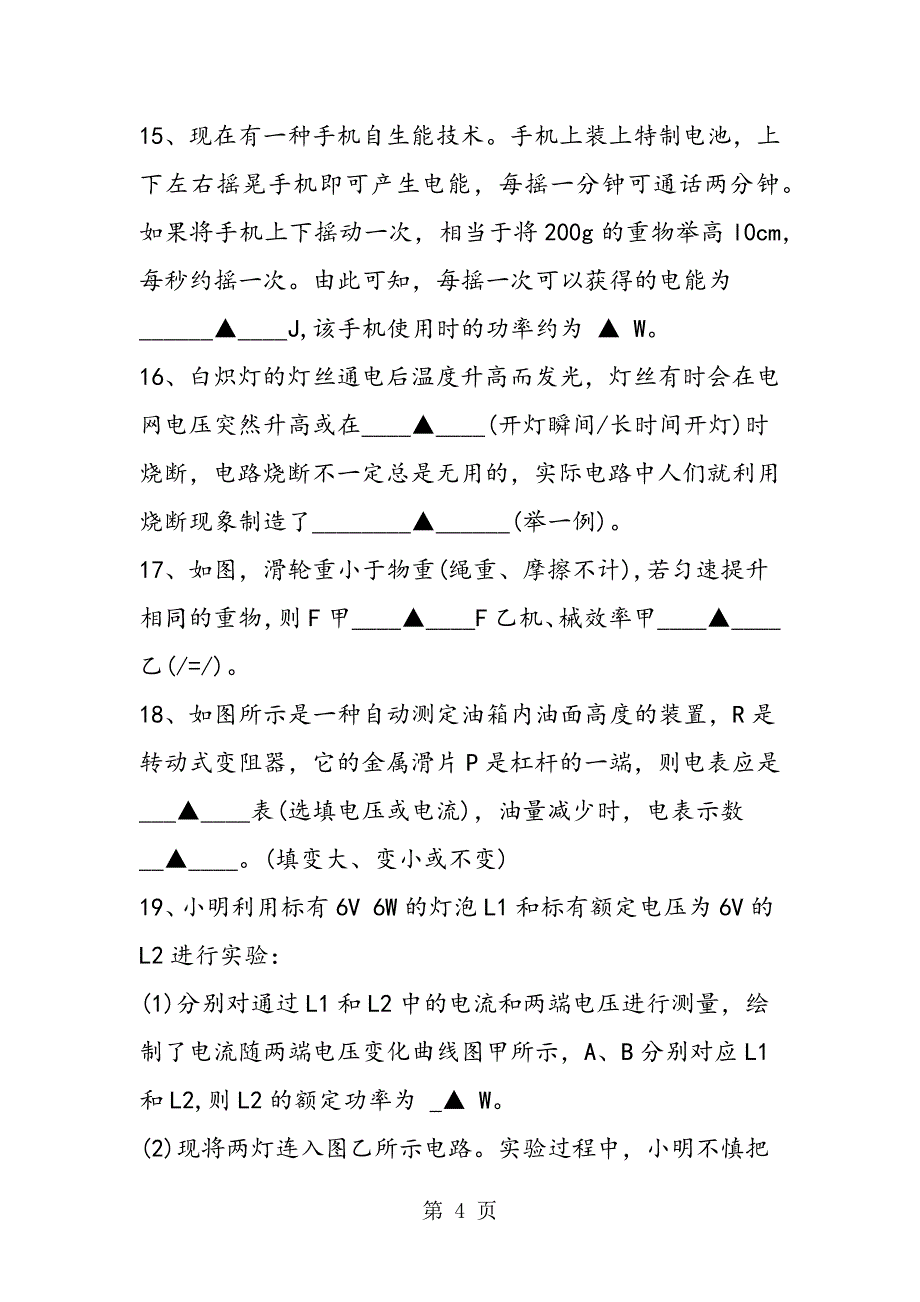 15、现在有一种手机自生能技术。手机上装上特制电池，上
下左右摇晃手机即可产生电能，每摇一分钟可通话两分钟。
如果将手机上下摇动一次，相当于将200g的重物举高l0cm，
每秒约摇一次。由此可知，每摇一次可以获得的电能为
______▲____J,该手机使用时的功率约为 ▲ W。
16、白炽灯的灯丝通电后温度升高而发光，灯丝有时会在电
网电压突然升高或在____▲____(开灯瞬间/长时间开灯)时
烧断，电路烧断不一定总是无用的，实际电路中人们就利用
烧断现象制造了________▲______(举一例)。
17、如图，滑轮重小于物重(绳重、摩擦不计),若匀速提升
相同的重物,则F甲____▲____F乙机、械效率甲____▲____
乙(/=/)。
18、如图所示是一种自动测定油箱内油面高度的装置，R是
转动式变阻器，它的金属滑片P是杠杆的一端，则电表应是
___▲____表(选填电压或电流)，油量减少时，电表示数
__▲____。(填变大、变小或不变)
19、小明利用标有6V 6W的灯泡L1和标有额定电压为6V的
L2进行实验：
(1)分别对通过L1和L2中的电流和两端电压进行测量，绘
制了电流随两端电压变化曲线图甲所示，A、B分别对应L1
和L2,则L2的额定功率为 _▲ W。
(2)现将两灯连入图乙所示电路。实验过程中，小明不慎把
第 4 页